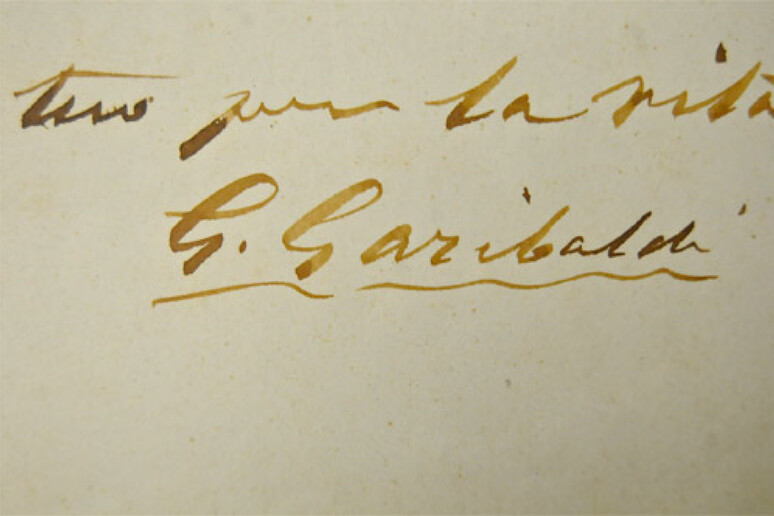 tuo per la vita
G. Garibaldi